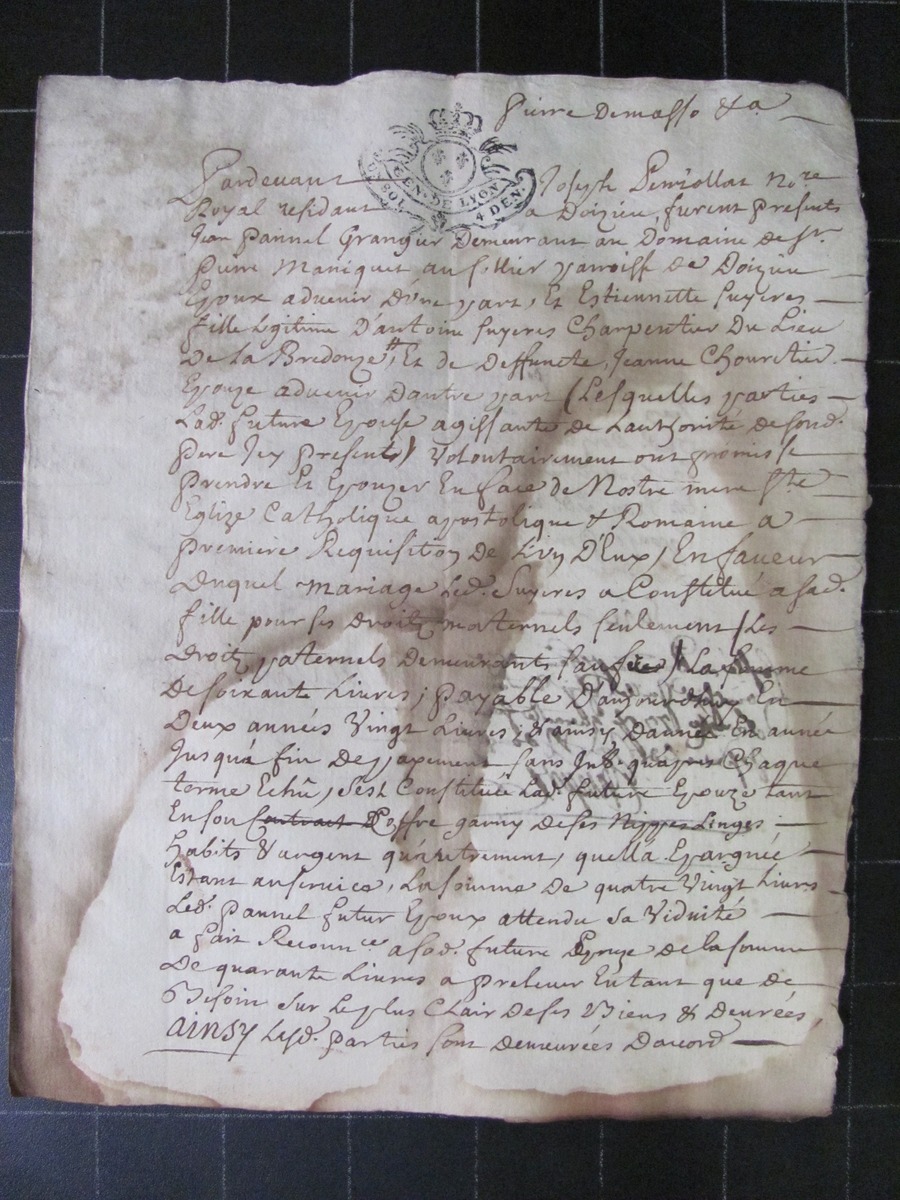 Pierre Demasso &a
GEN. DE LYON
SOL 4 DEN.
Pardevant Joseph Penriollat No.re
Royal residant a Doizieu, furent Presents
Jean Pannel Granger Demeurant au Domaine de Sr.
Pierre Maniquet au fillier parroisse de Doizieu
Epoux advenir D'une part, Et Estiennette Suyeres
fille Legitime D'antoine Suyeres Charpentier Du Lieu
De la Bredonze, Et de Deffuncte Jeanne Chouretier
Epouze advenir dautre part (Lesquelles parties
Lad. future Epouse agissante de Lauthorité de sond.
Pere Icy Present) Volontairement ont promis se
Prendre Et Epouzer En face de Nostre mere Ste
Eglize Catholique apostolique & Romaine a
Premiere Requisition de L'un D'Eux, En faveur
Duquel mariage Led. Suyeres a Constitué a sad.
fille pour ses Droitz maternels seulement (Les
Droitz paternels Demeurants saufs) La somme
De soixante Livres, payable D'aujourdhuy En
Deux années Vingt Livres, & ainsy D'année En année
Jusqu'a fin De payement sans Int. qu'apres Chaque
terme Echû, s'est Constituée Lad. future Epouze tant
En son Contract Coffre garny de ses Nippes Linges
habits & argent qu'autrement, quella Epargnée
Estant au service, La somme De quatre Vingt Livres
Led. Pannel futur Epoux attendu sa Viduité
a fait Reconn.ce a sad. future Epouze De la somme
De quarante Livres a prelever En tant que de
Besoin sur Le plus Clair de ses Biens & Denrées
ainsy Lesd. Parties sont demeurées Dacord